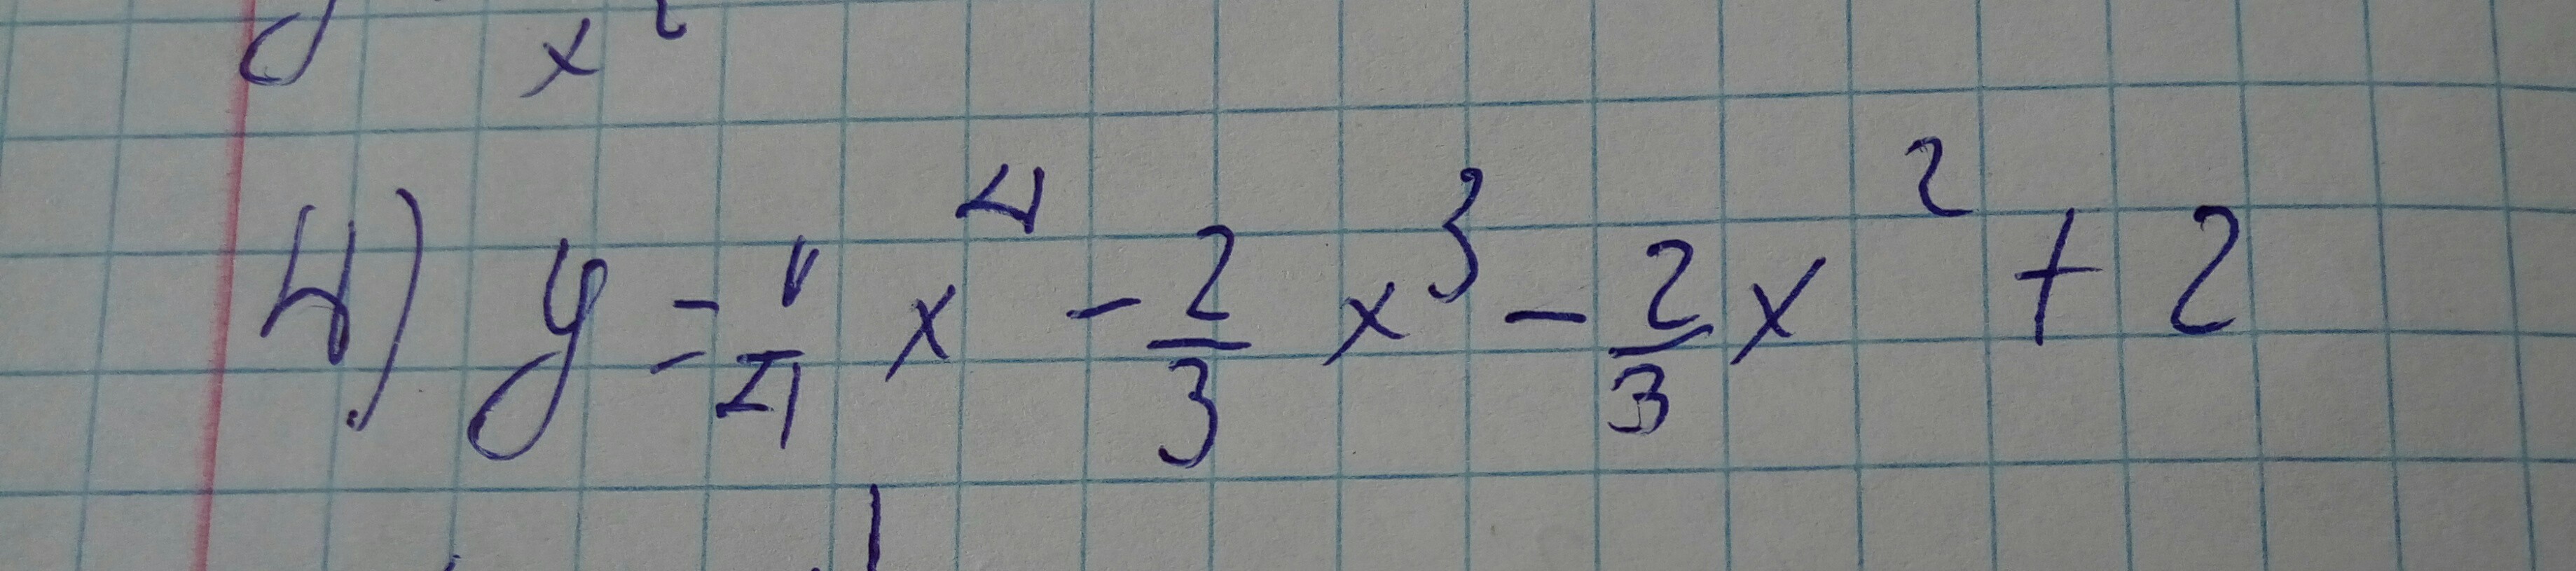 x²
4) y = 1/4 x⁴ - 2/3 x³ - 2/3 x² + 2